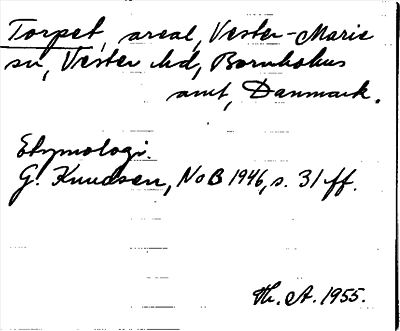 Torpet, areal, Vester-Marie
sn, Vester hd, Bornholms
amt, Danmark.
Etymologi.
G. Knudsen, NoB 1946, s. 31 ff.
Th. A. 1955.